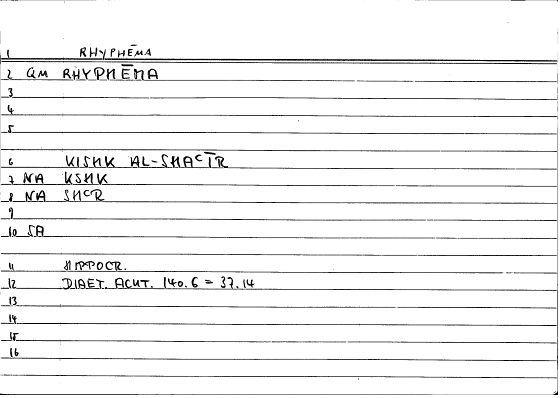 1 RHYPHĒMA
2 GM RHYPHĒMA
3
4
5
6 KISHK AL-SHAᶜĪR
7 NA KSHK
8 NA SHᶜR
9
10 SA
11 HIPPOCR.
12 DIAET. ACUT. 140.6 = 37.14
13
14
15
16